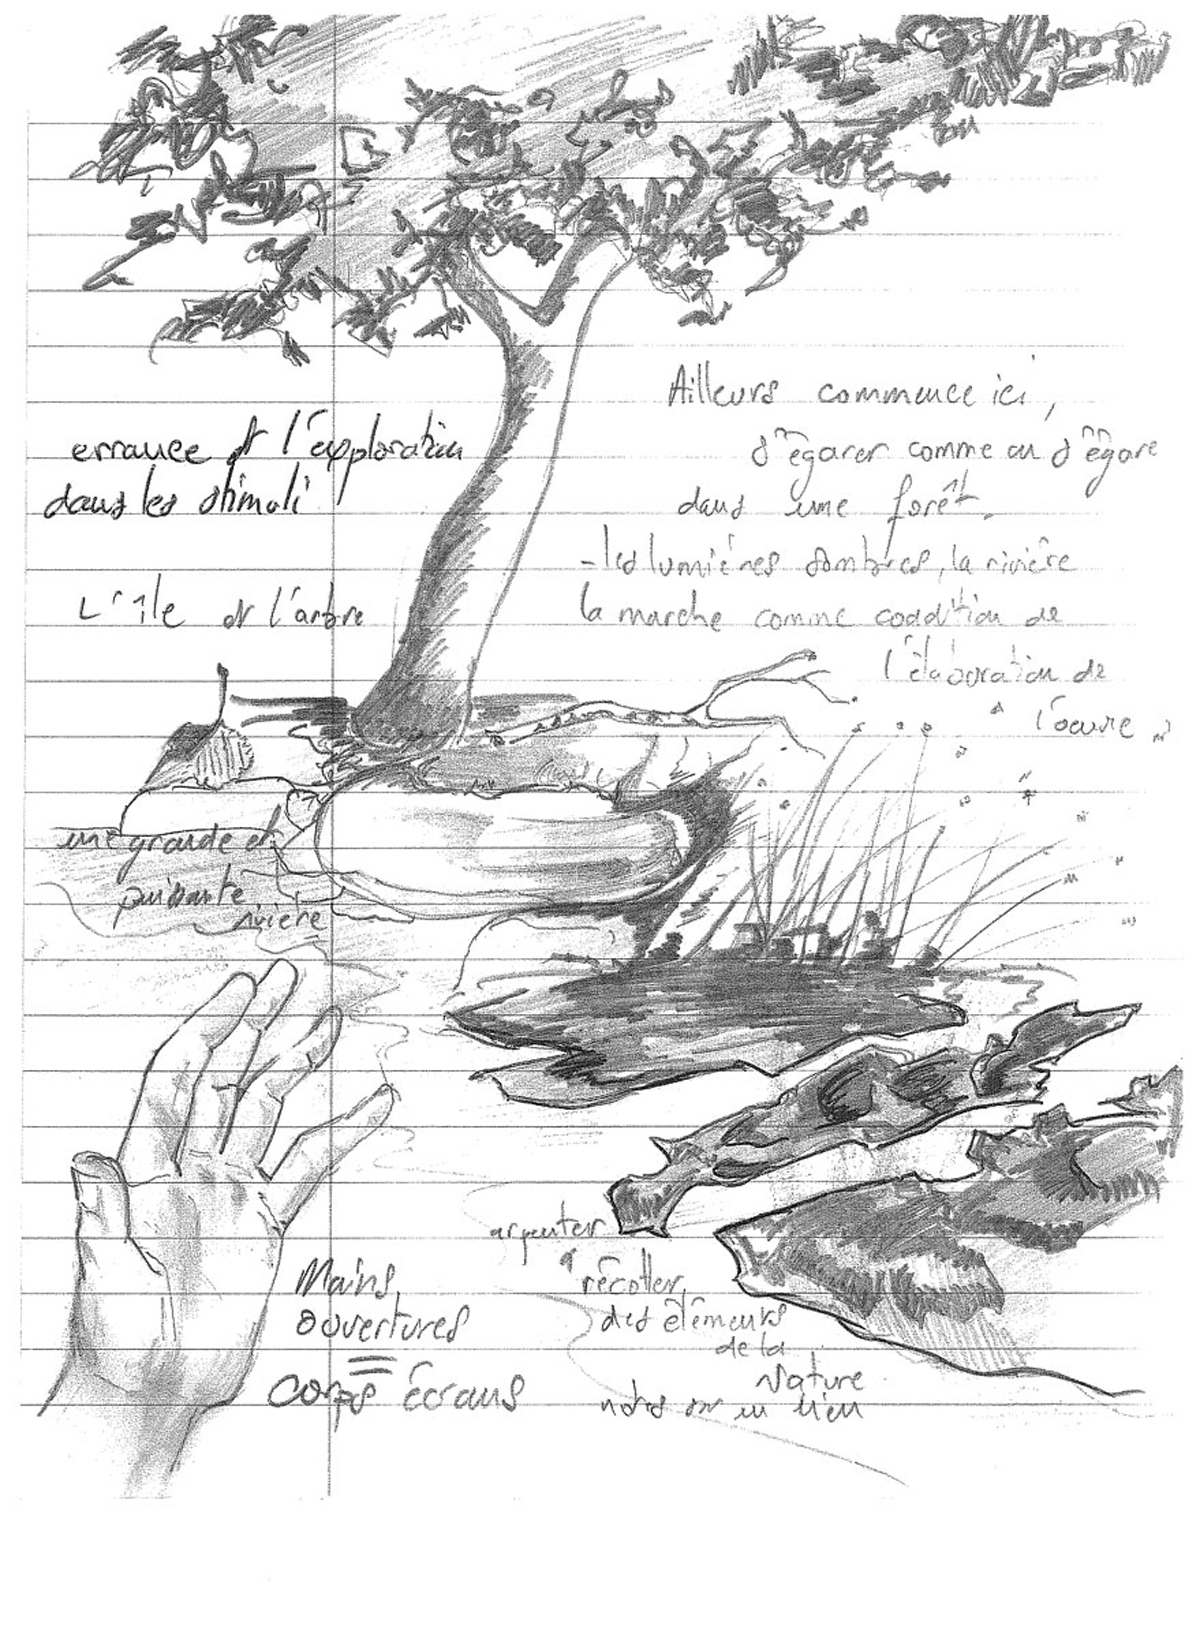 Ailleurs commence ici,
s'égarer comme on s'égare
dans une forêt.
- les lumières sombres, la rivière
la marche comme condition de
l'élaboration de
l'oeuvre
errance et l'exploration
dans les stimuli
L'île et l'arbre
une grande et
puissante
rivière
Mains
ouvertures
=
corps écrans
arpenter
récolter
des éléments
de la
Nature
notes sur un lieu